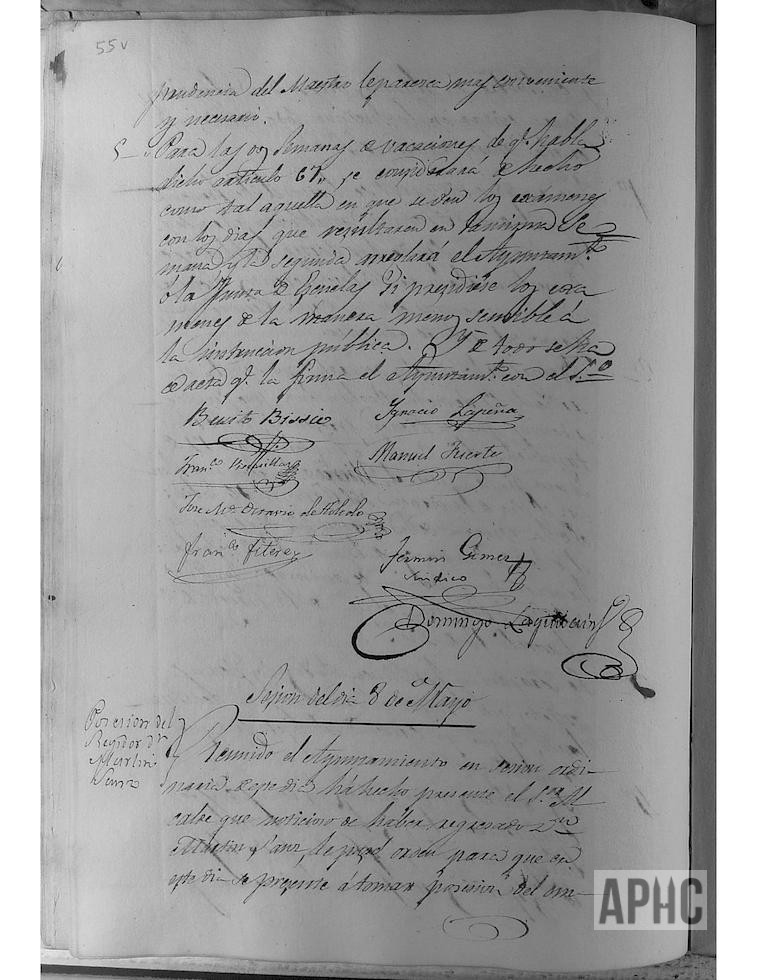 55v
prudencia del Maestro le paresca mas conveniente
y necesario.
5 Para las dos semanas de vacaciones de qe. habla
dicho articulo 67, se considerará de hecho
como tal aquella en que se den los exámenes
con los dias que resultaren en la misma se
mana, y la segunda arreglará el Ayuntamto.
ó la Junta de Escuelas si presidiese los exa
menes de la manera menos sensible á
la instruccion pública. Y de todo se
acta qe. la firma el Ayuntamto. con el Srio
Benito Ignacio Lapeña
Franco. Manuel Fuerte
Jose Ma.
Franco. Fermin Gimenez
Sindico
Domingo
Sesion del dia 8 de Mayo
Posesion del
Regidor Dn.
Martin
Sanz
Reunido el Ayuntamiento en sesion ordi-
naria de este dia há hecho presente el Sor. Al
calde que noticioso de haber regresado Dn.
Martin Sanz, le pasó orden para que en
este dia se presente á tomar posesion del em-
APHC